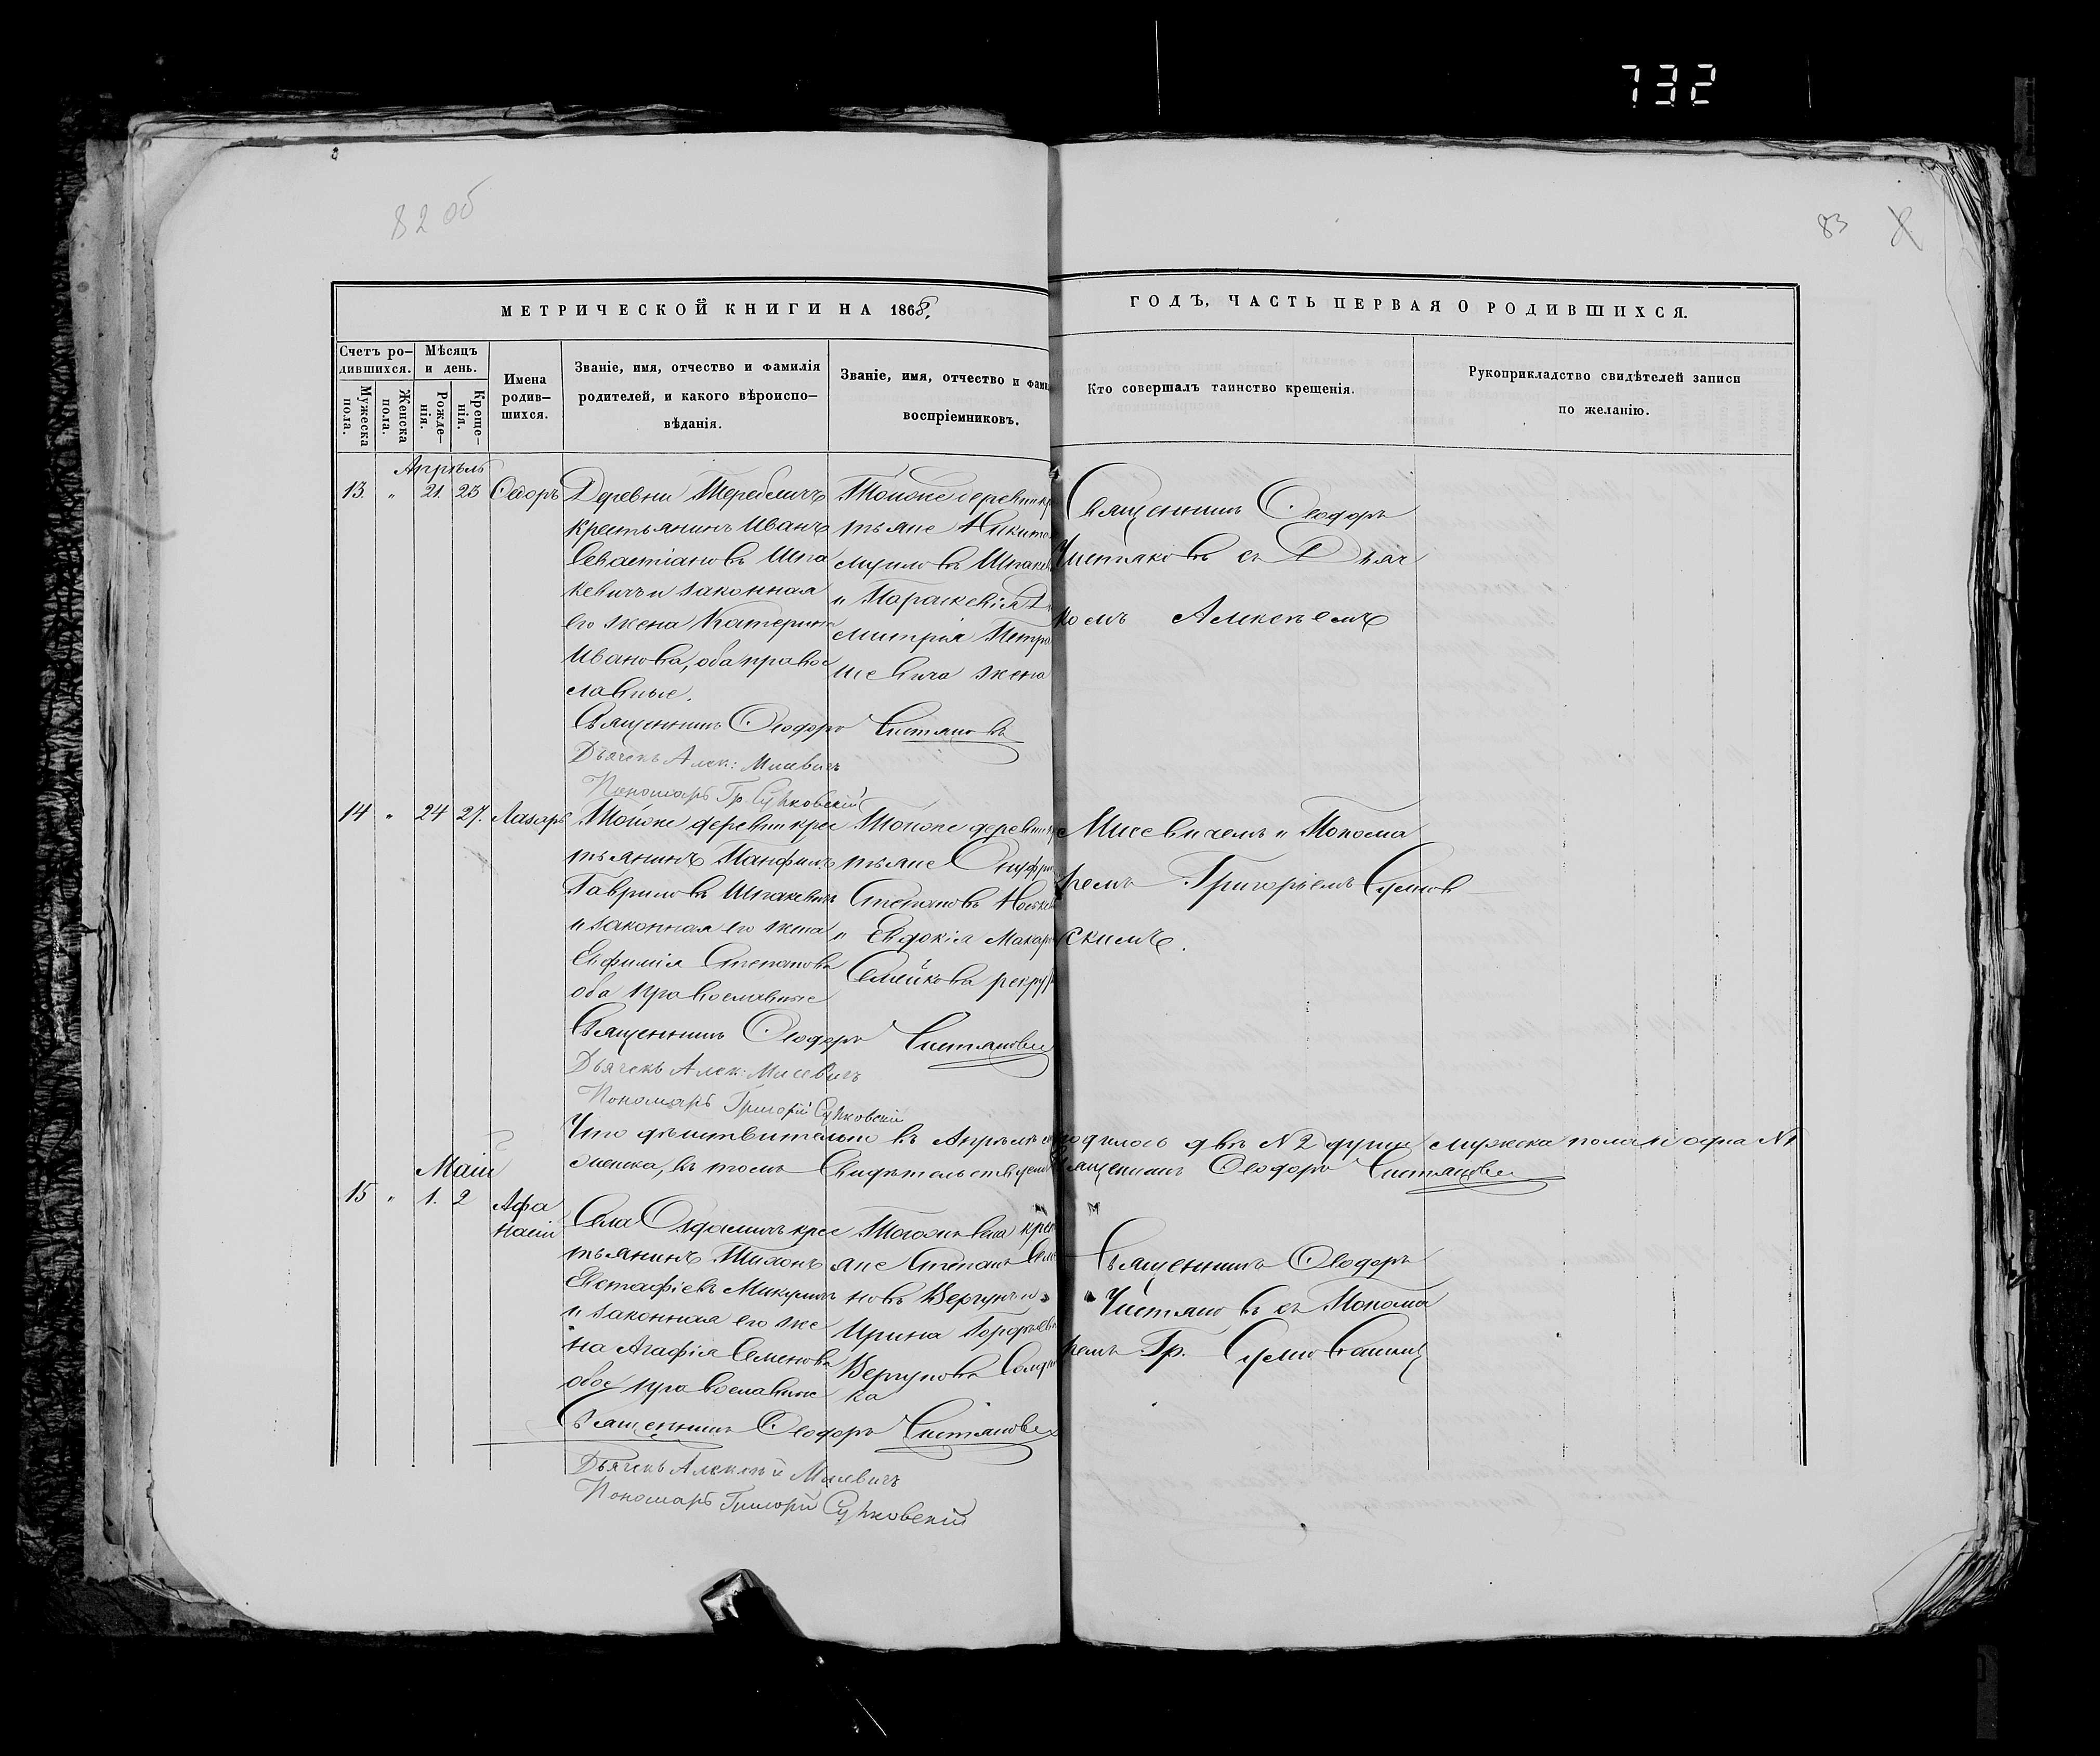 732
82 об
83
МЕТРИЧЕСКОЙ КНИГИ НА 1868.
ГОДЪ, ЧАСТЬ ПЕРВАЯ О РОДИВШИХСЯ.
Счетъ ро-
дившихся.
Мужеска
пола.
Женска
пола.
Мѣсяцъ
и день.
Рожде-
нія.
Креще-
нія.
Имена
родив-
шихся.
Званіе, имя, отчество и фамилія
родителей, и какого вѣроиспо-
вѣданія.
Званіе, имя, отчество и фами
воспріемниковъ.
Кто совершалъ таинство крещенія.
Рукоприкладство свидѣтелей записи
по желанію.
Апрѣль
13. " 21. 23 Ѳедоръ
Деревни Теребличъ
крестьянинъ Иванъ
Севастіановъ Шпа
кевичъ и законная
его жена Катерина
Иванова, оба правос
лавные.
Тойже деревни кр
тьяне Никита
Шпаке
и Параскевія Д
митрія Петра
шевича жена
Священникъ Ѳеодоръ
Чистяковъ съ Дьяч
комъ Алексѣемъ
Священникъ Ѳеодоръ Чистяковъ
Дьячекъ Алек: Мисевичъ
Пономарь Гр. Сулковскій
14 " 24 27. Лазарь
Тойже деревни крес
тьянинъ Панфилъ
Гавриловъ Шпакевичъ
и законная его жена
Евфимія Степанова
оба православные
Тойже деревни кре
тьяне Онуфри
Степановъ
и Евдокія Макар
Семейкова
Мисевичемъ и Понома
ремъ Григоріемъ Сулков
скимъ.
Священникъ Ѳеодоръ Чистяковъ
Дьячекъ Алек: Мисевичъ
Пономарь Григорій Сулковскій
Что дѣйствительно въ Апрѣлѣ родилось двѣ N2 души мужеска пола и одна N1
женска, въ томъ Свидѣтельствуемъ Священникъ Ѳеодоръ Чистяковъ
Маій
15 " 1. 2 Афа
насій
Села Ольгомичъ крес
тьянинъ Тихонъ
Евстафіевъ Микуличъ
и законная его же
на Агафія Семенова
обое православные
Тогожъ села крес
яне Степанъ Семе
новъ Вергунъ и
Ирина
Вергунова Солдат
ка
Священникъ Ѳеодоръ
Чистяковъ съ Понома
ремъ Гр. Сулковскимъ
Священникъ Ѳеодоръ Чистяковъ
Дьячекъ Алексѣй Мисевичъ
Пономарь Григорій Сулковскій